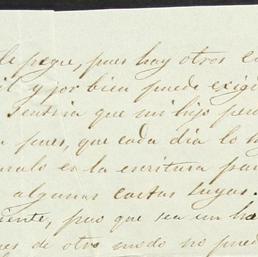 le pegue, pues hay otros
il y por bien puede exig
sentiria que mi hijo per
pues, que cada dia lo h
en la escritura par
algunas cartas suyas.
iente, pero que sea un ha
es de otro modo no pued